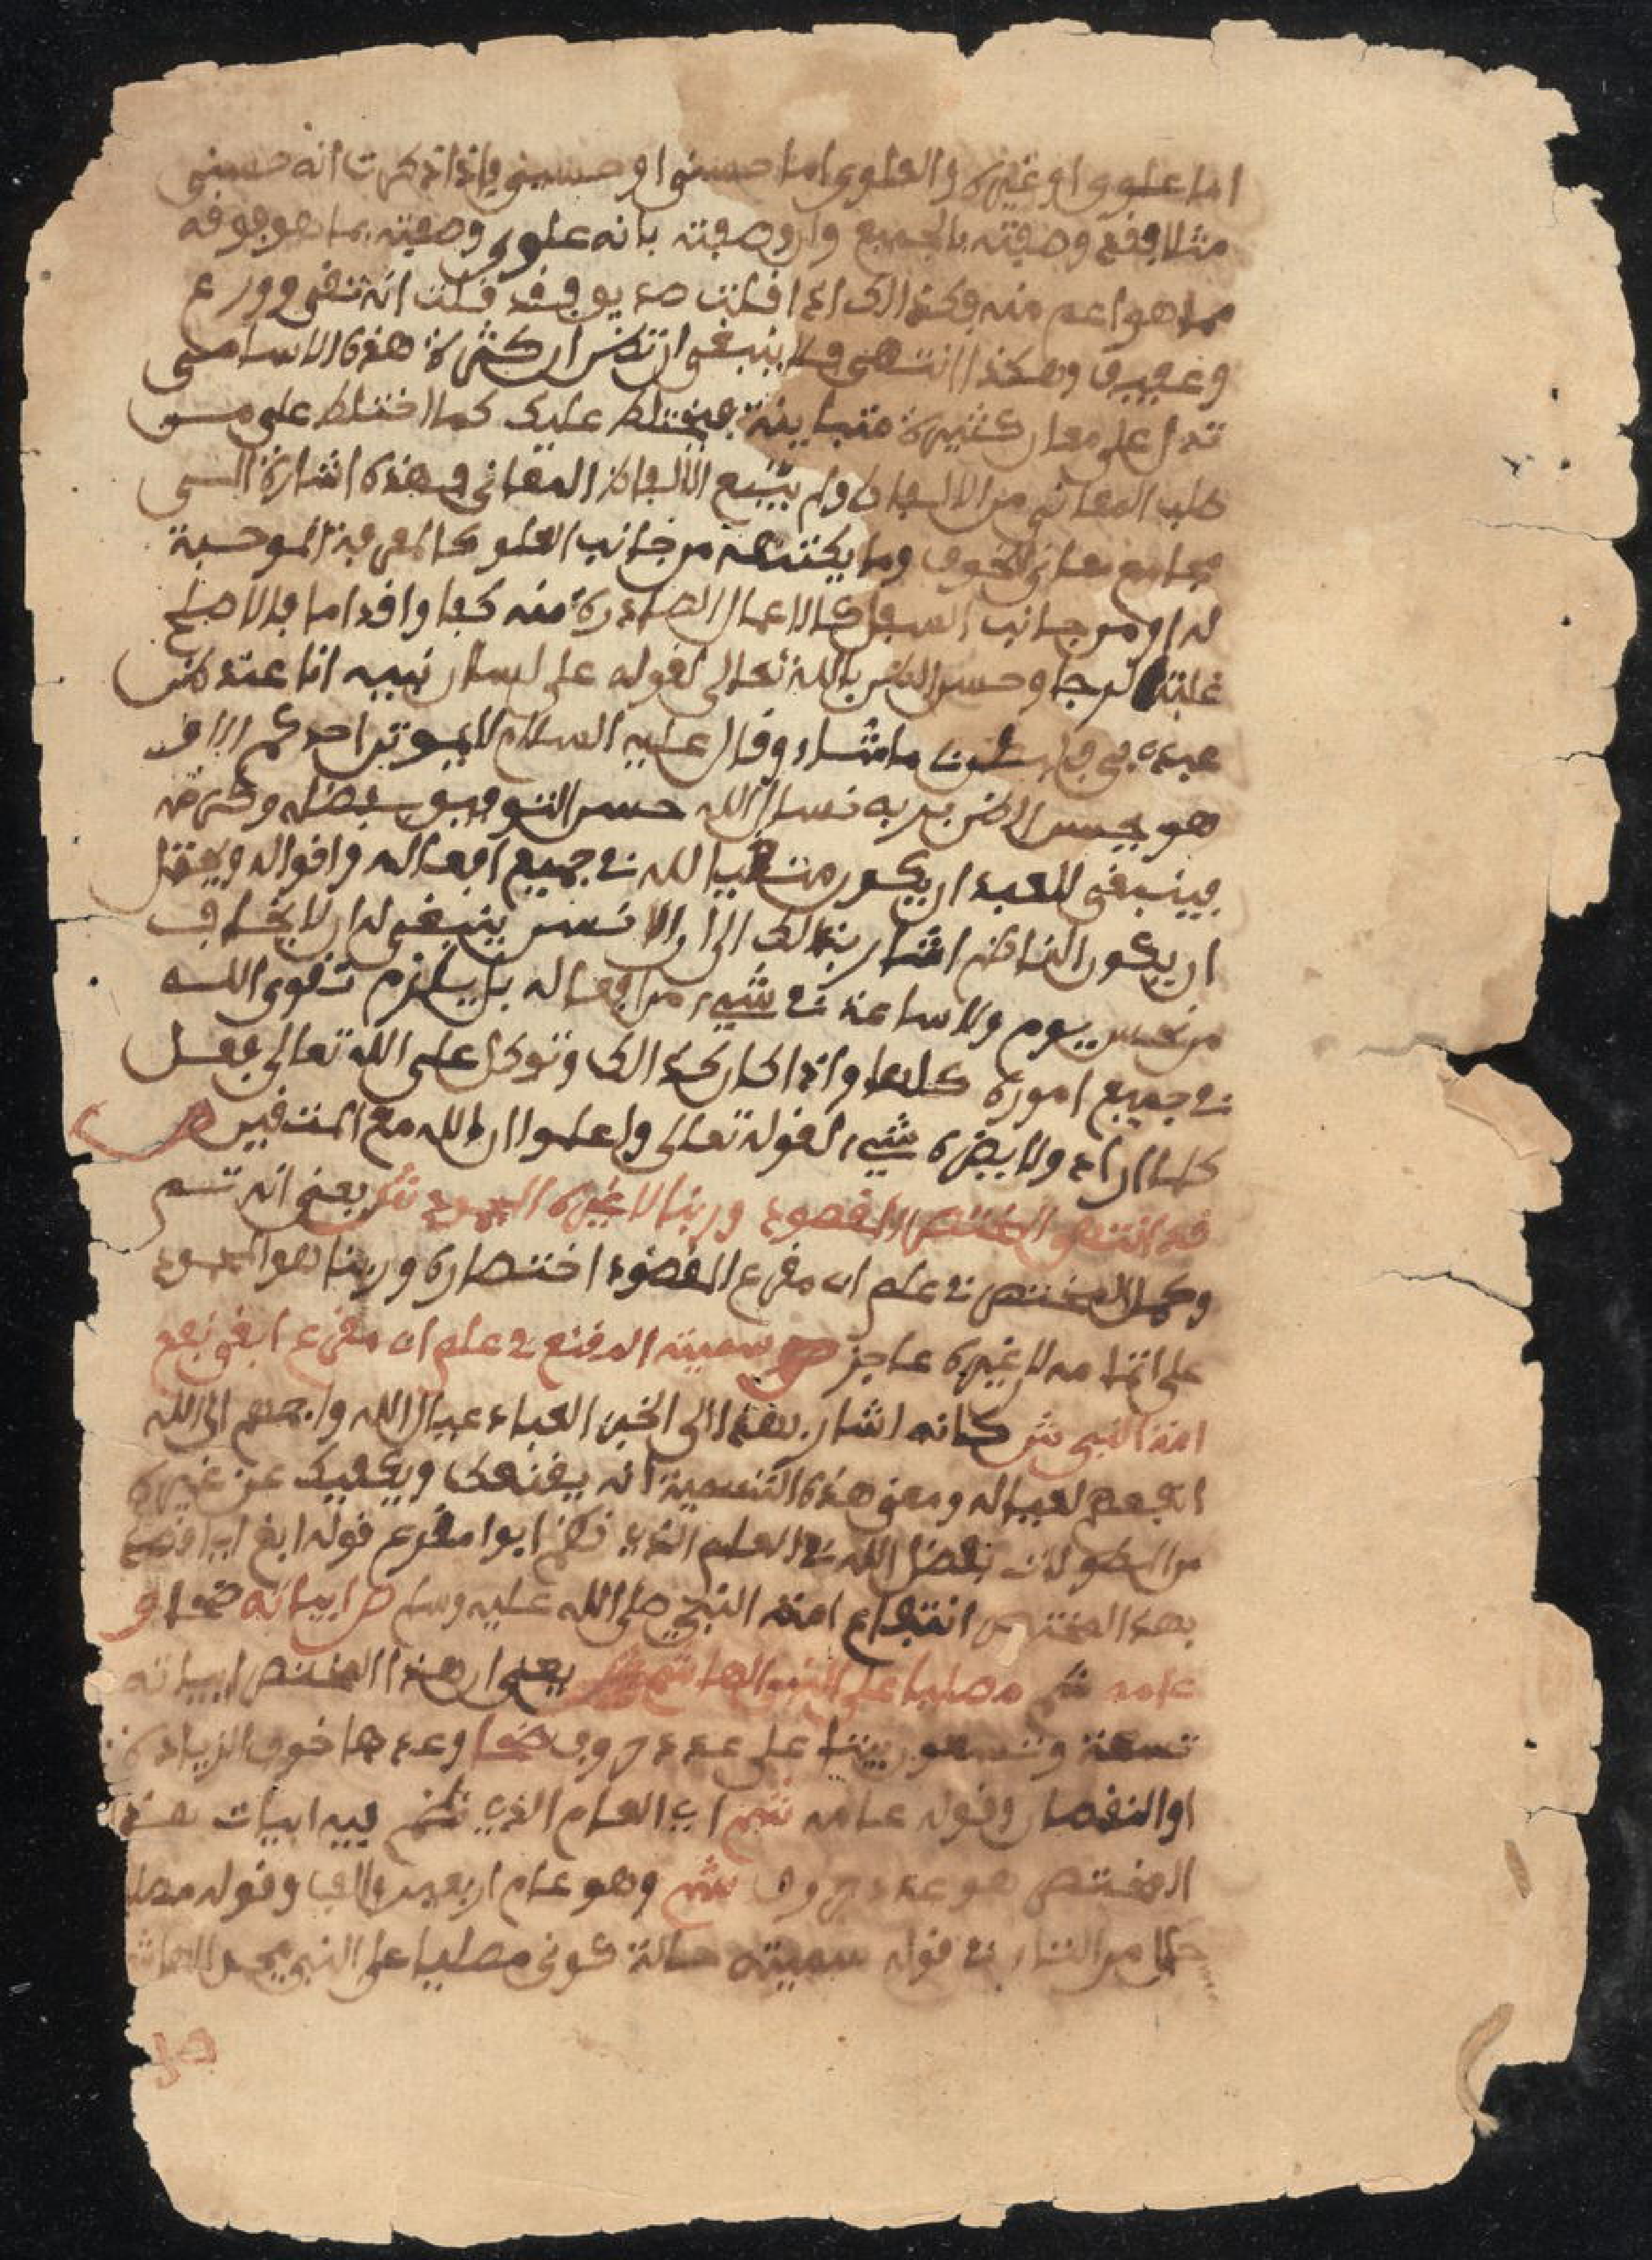 اما علوي او غيره والعلوي اما حسني او حسيني فاذا ذكرت انه حسيني
مثلا فقد وصفته بالجميع وان وصفته بانه علوي وصفته بما هو فوقه
مما هو اعم منه وكذالك اذا قلت صديق فقد قلت انه تقي وورع
وعفيف وهكذا انتهى ولا ينبغي ان تظن ان كثرة هذه الاسامي
تدل على معان كثيرة متباينة فيختلط عليك كما اختلط على من
طلب المعاني من الالفاظ ولم يتبع الالفاظ المعاني وهذه اشارة الى
مجامع معاني الخوف وما يكتنفه من جانب العلو كالمعرفة الموجبة
له او من جانب السفل كالاعمال الصادرة منه كفا واقداما فالاصلح
غلبة الرجا وحسن الظن بالله تعالى لقوله على لسان نبيه انا عند ظن
عبدي بي فليظن ما شاء وقال عليه السلام لا يموتن احدكم الا و
هو يحسن الظن بربه نسال الله حسن التوفيق بفضله وكرمه
فينبغي للعبد ان يكون متقيا لله في جميع افعاله واقواله ويحتمل
ان يكون الناظم اشار بذالك الى ان الانسان ينبغي له ان لا يخاف
من نحس يوم ولا ساعة في شيء من افعاله بل يلزم تقوى الله
في جميع اموره كلها واذا كان كذالك وتوكل على الله تعالى فعل
كلما اراد ولا يضره شيء لقوله تعالى واعلموا ان الله مع المتقين ص
قد انتهى المختصر المقصود وربنا لا غيره المحمود ش يعني انه تم
وكمل المختصر في علم ابي مقرع المقصود اختصاره وربنا هو المحمود
على اتمامه لا غيره عاجز ص سميته المقنع في علم ابي مقرع ابغي نفع
امة النبي ش كانه اشار بهذا الى الخبر العباد عيال الله واحبهم الى الله
انفعهم لعياله ومعنى هذه التسمية انه يقنعك ويكفيك عن غيره
من المطولات بفضل الله في العلم الذي نظم ابوا مقرع قوله ابغي اي اقصد
بهذ المختصر انتفاع امة النبي صلى الله عليه وسلم ص ابياته ضحا و
عامه شم مصليا على النبي الهاشمي ش يعني ان هذا المختصر ابياته
تسعة وتسعون بيتا على عدد حروف ضحا وعدها خوف الزيادة
او النقصان وقوله عامه شم اي العام الذي نظم فيه ابيات هذ
المختصر هو عدد حروف شم وهو عام اربعين والف وقوله مصليا
حال من التاء في قوله سميته حالة كوني مصليا على النبي محمد الهاش